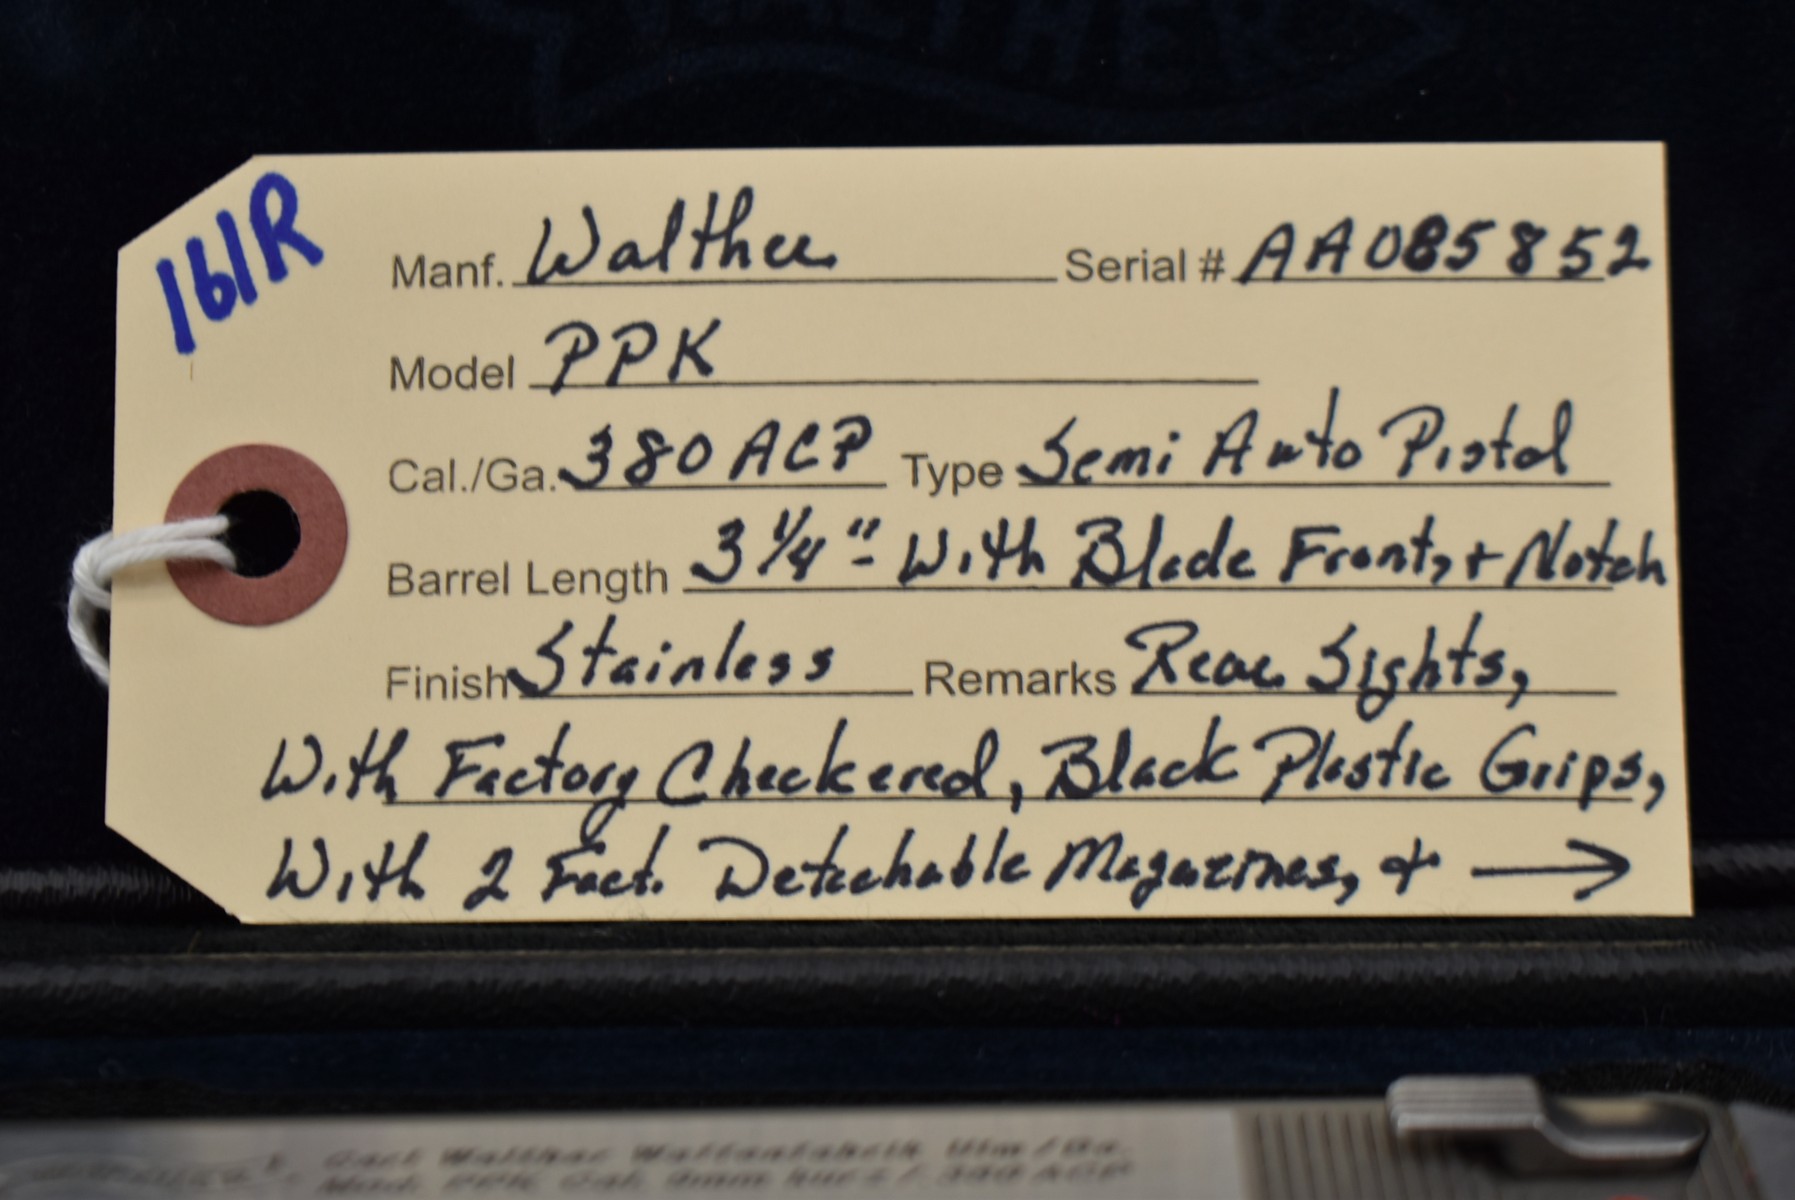 WALTHER
161R
Manf. Walther Serial # AA085852
Model PPK
Cal./Ga. 380 ACP Type Semi Auto Pistol
Barrel Length 3 1/4" - With Blade Front, + Notch
Finish Stainless Remarks Rear Sights,
With Factory Checkered, Black Plastic Grips,
With 2 Fact. Detachable Magazines, + →
Carl Walther Waffenfabrik Ulm/Do.
Mod. PPK Cal. 9mm kurz / .380 ACP